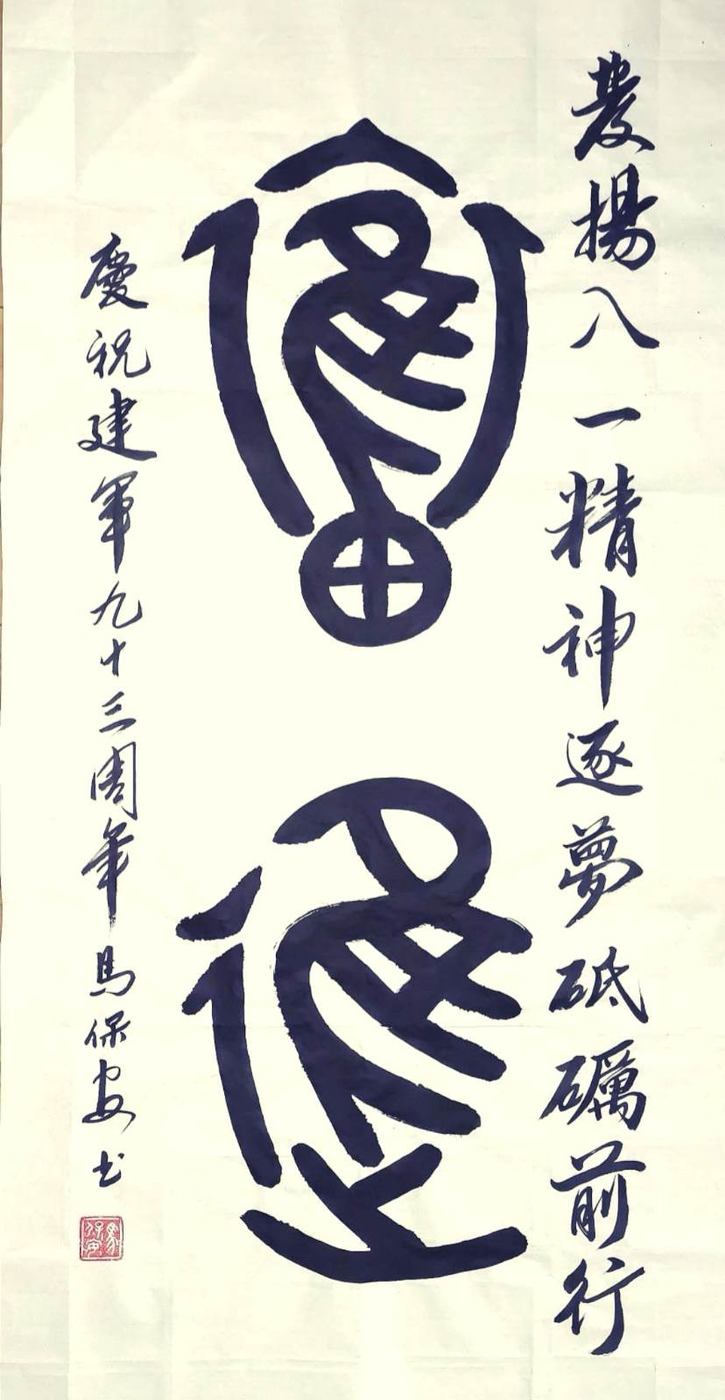 發揚八一精神逐夢砥礪前行
慶祝建軍九十三周年馬保安书